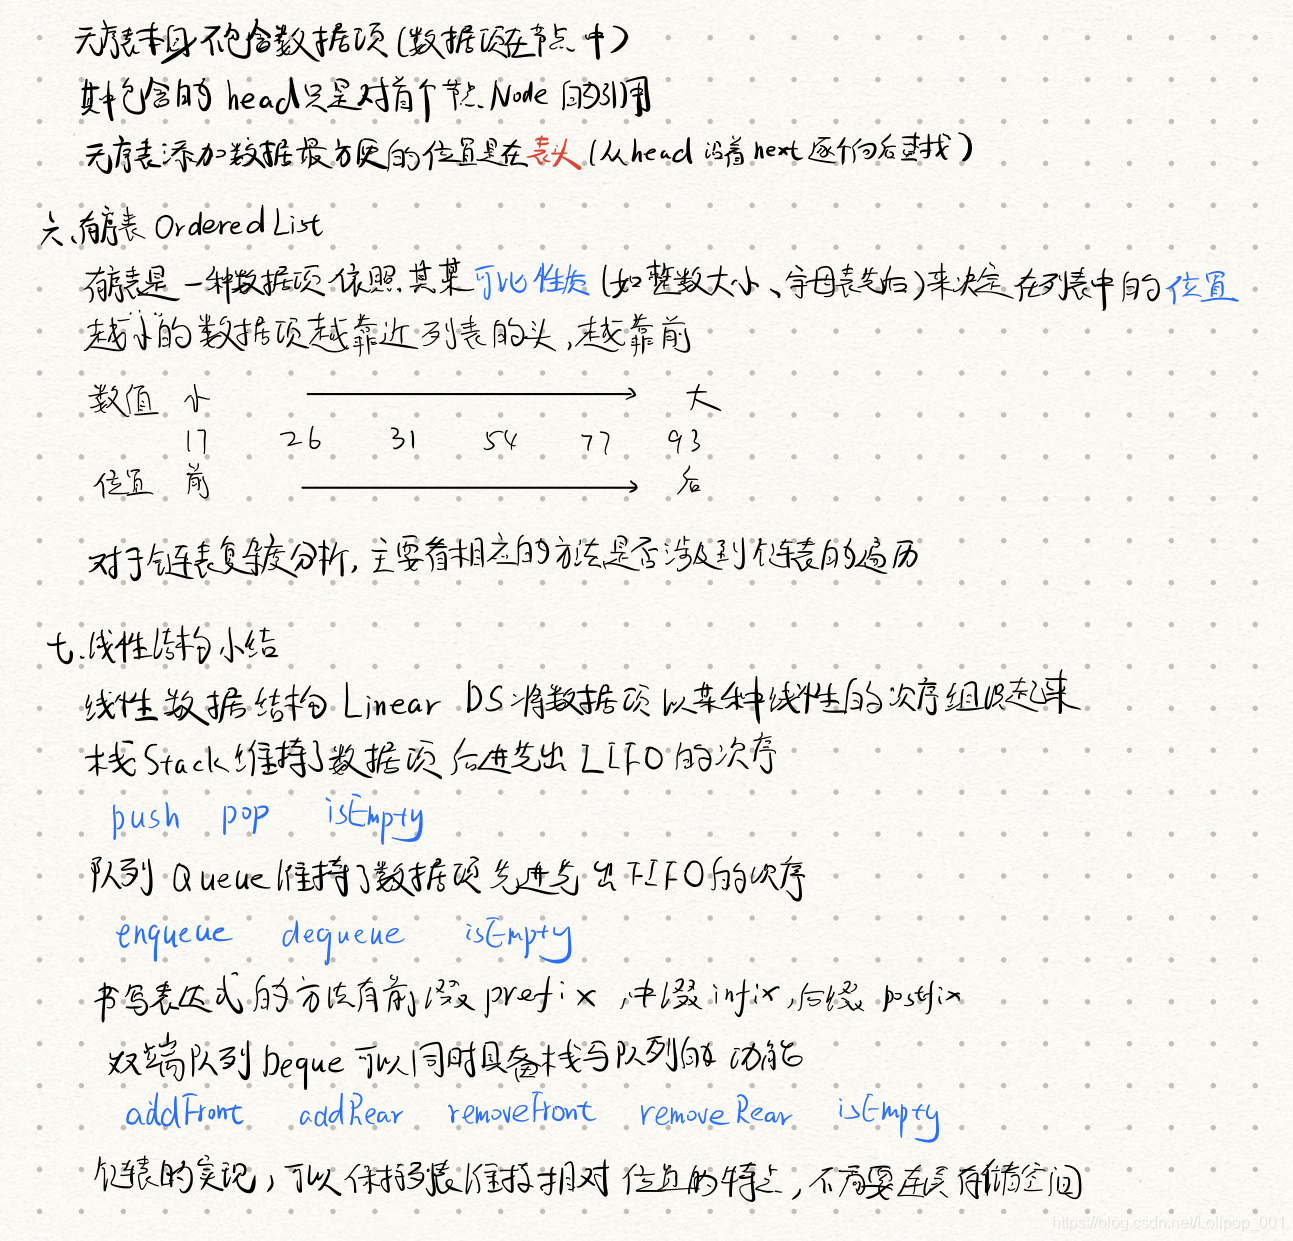 无序表本身不包含数据项(数据项在节点中)
其中包含的head只是对首个节点Node的引用
无序表添加数据最方便的位置是在表头(从head沿着next逐个向后查找)
六、有序表 Ordered List
有序表是一种数据项依照其某可比性质(如整数大小、字母表先后)来决定在列表中的位置
越小的数据项越靠近列表的头,越靠前
数值 小 大
17 26 31 54 77 93
位置 前 后
对于链表复杂度分析,主要看相应的方法是否涉及到链表的遍历
七.线性结构小结
线性数据结构Linear DS将数据项以某种线性的次序组织起来
栈Stack维持了数据项后进先出LIFO的次序
push pop isEmpty
队列Queue维持了数据项先进先出FIFO的次序
enqueue dequeue isEmpty
书写表达式的方法有前缀prefix,中缀infix,后缀postfix
双端队列Deque可以同时具备栈与队列的功能
addFront addRear removeFront removeRear isEmpty
链表的实现,可以保持列表维持相对位置的特点,不需要连续存储空间
https://blog.csdn.net/Lollpop_001